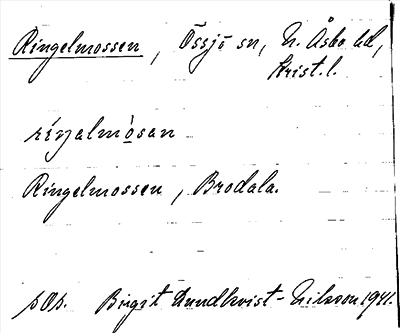 Ringelmossen, Össjö sn, N. Åsbo hd,
Krist. l.
riŋalmòsan
Ringelmossen, Brodala.
sOs. Birgit Lundkvist-Nilsson 1941.